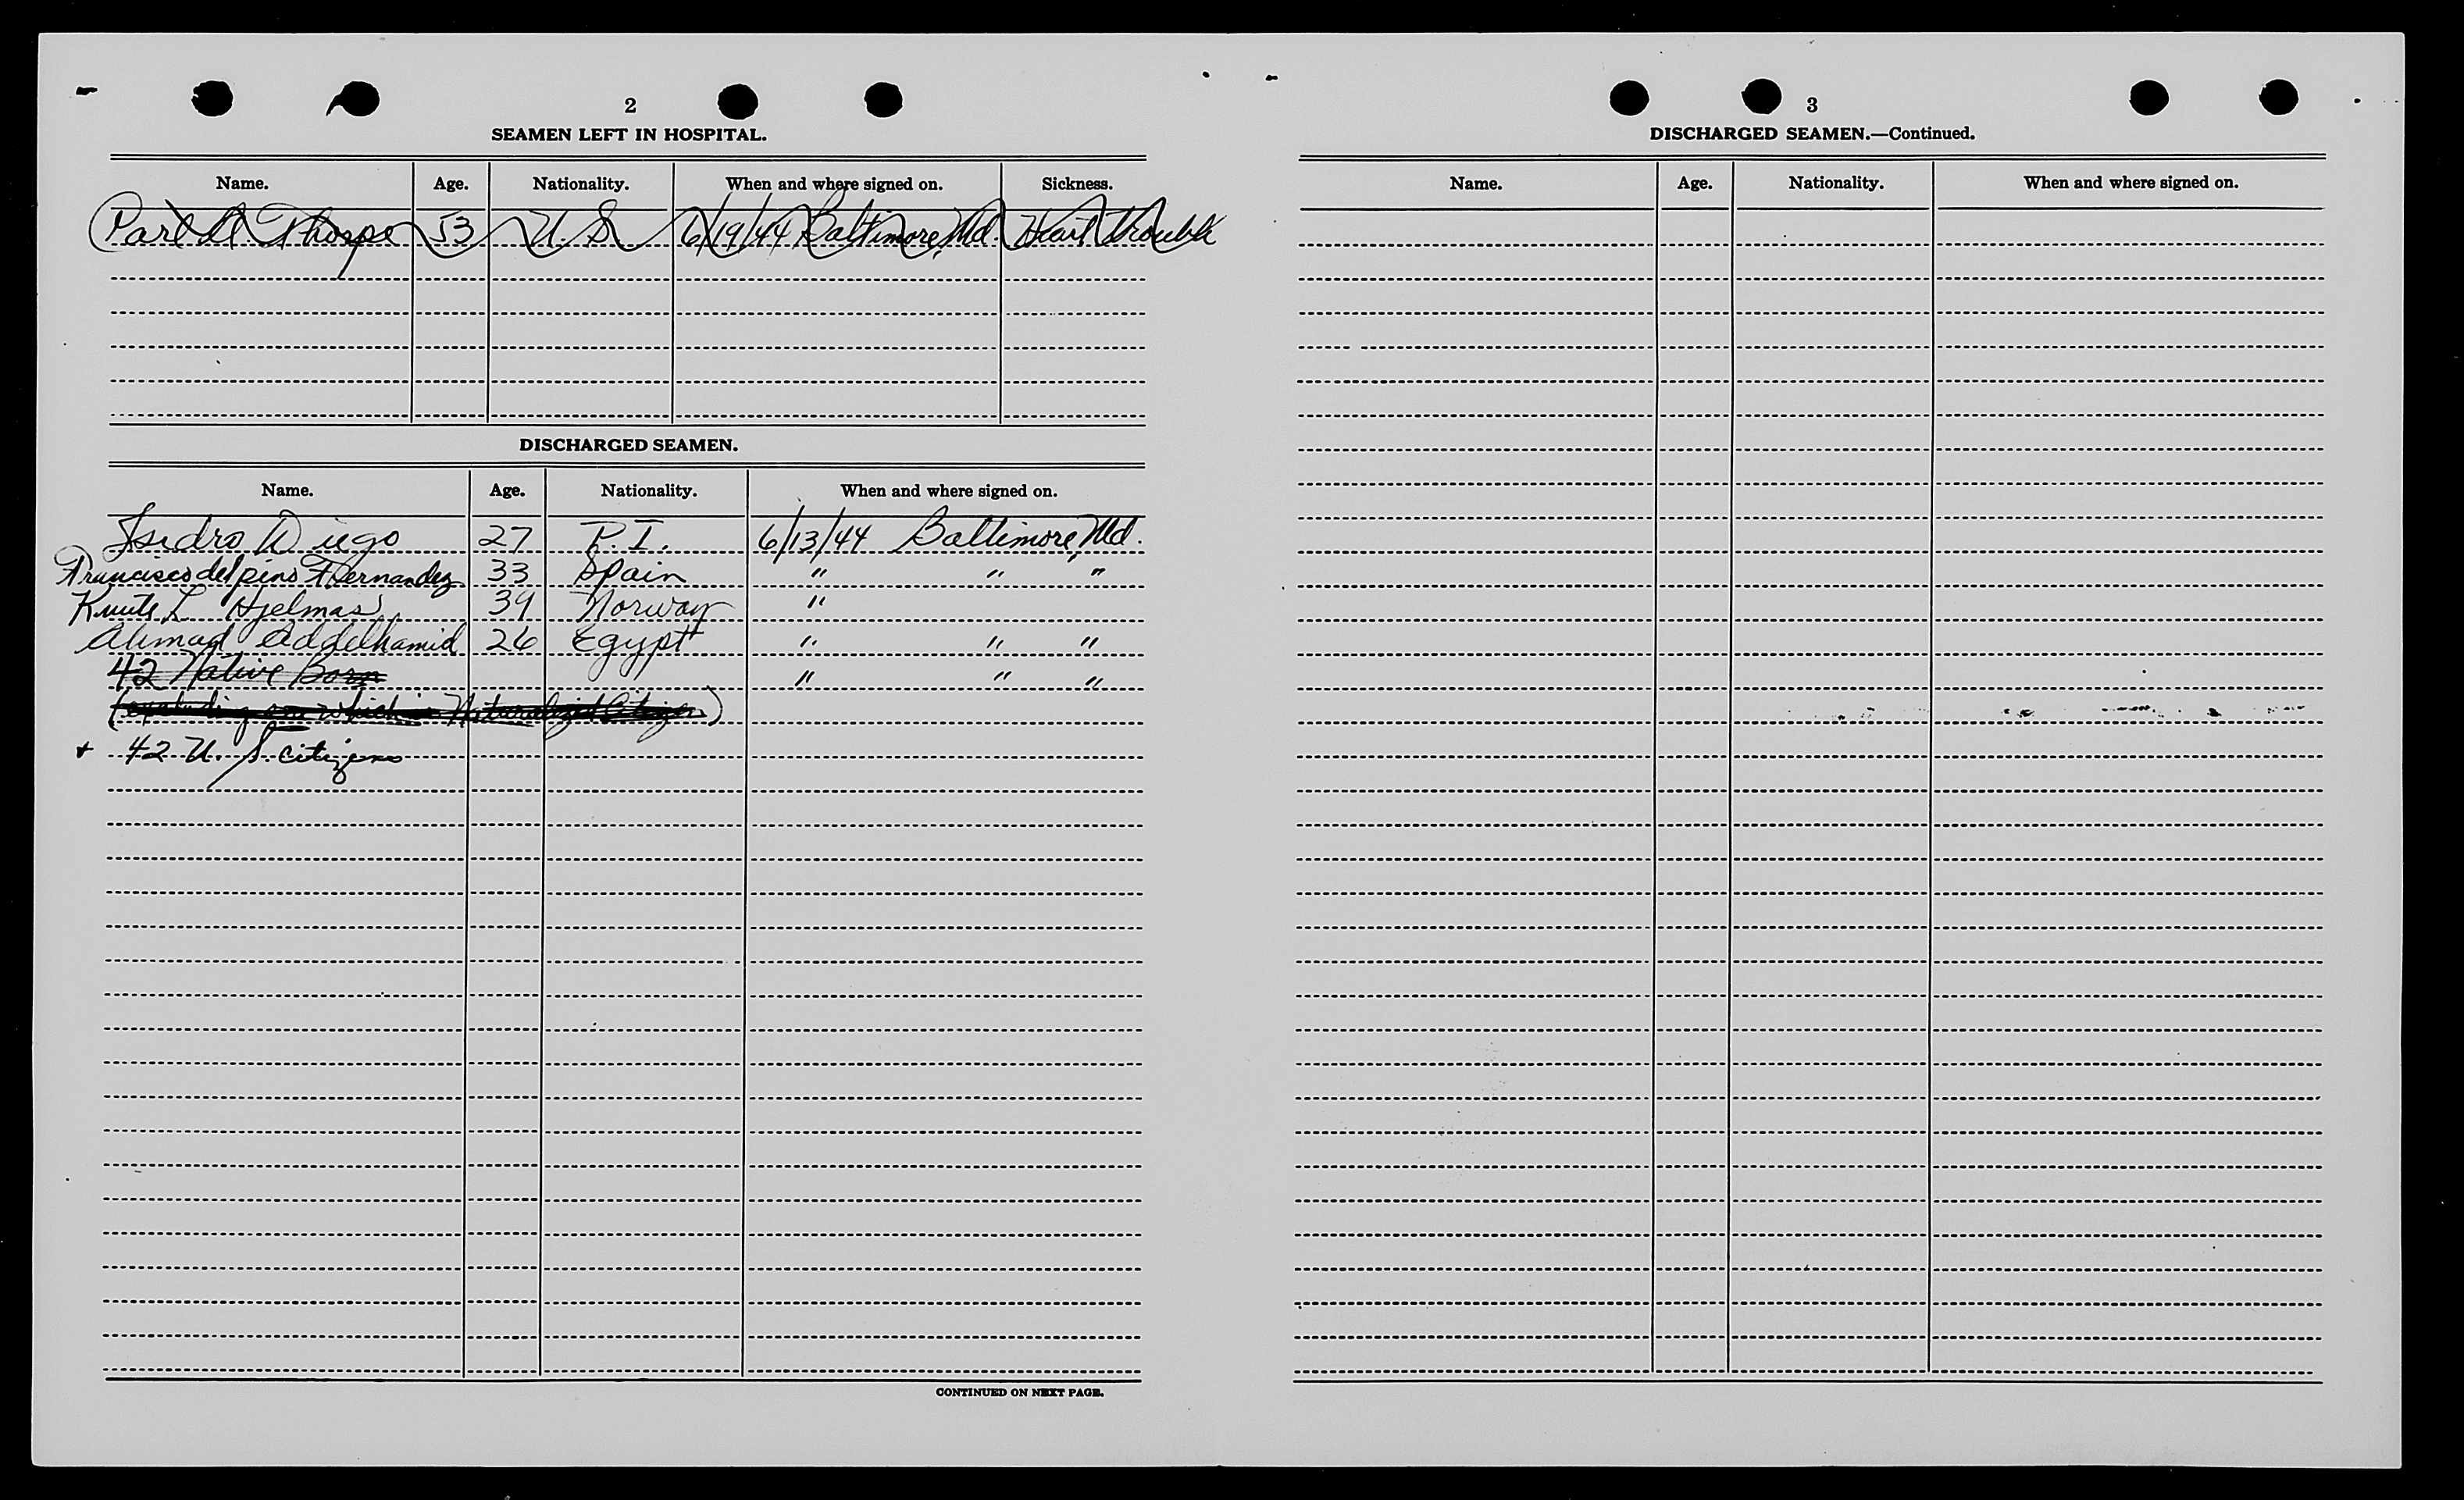 2
SEAMEN LEFT IN HOSPITAL.
Name. Age. Nationality. When and where signed on. Sickness.
Thorpe 53 U S 6/19/44 Baltimore, Md. Heart Trouble
DISCHARGED SEAMEN.
Name. Age. Nationality. When and where signed on.
Isidro Diego 27 P.I. 6/13/44 Baltimore, Md.
Francisco del pino Hernandez 33 Spain " " "
Knute L. Hjelmas 39 Norway "
Ahmad Addelhamid 26 Egypt " " "
42 Native Born " " "
(excluding one which is Naturalized Citizen)
+ 42 U.S. citizens
CONTINUED ON NEXT PAGE.
3
DISCHARGED SEAMEN.—Continued.
Name. Age. Nationality. When and where signed on.